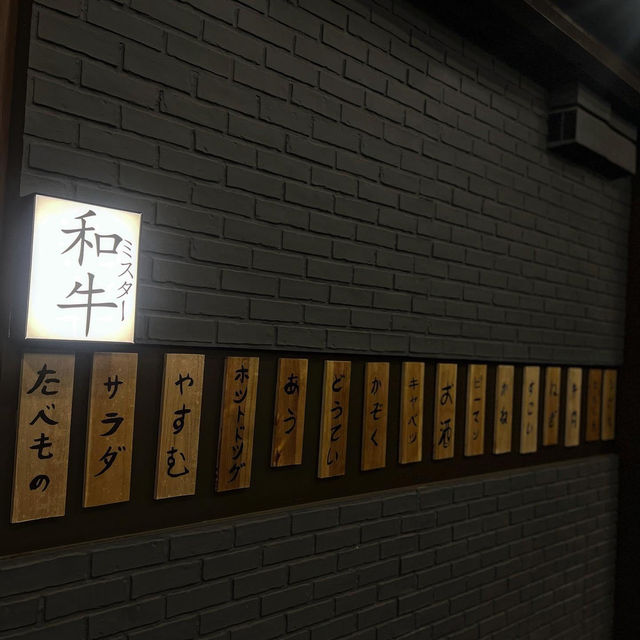 和牛
ミスター
たべもの
サラダ
やすむ
ホットドッグ
あう
どうてい
かぞく
キャベツ
お酒
ピーマン
かね